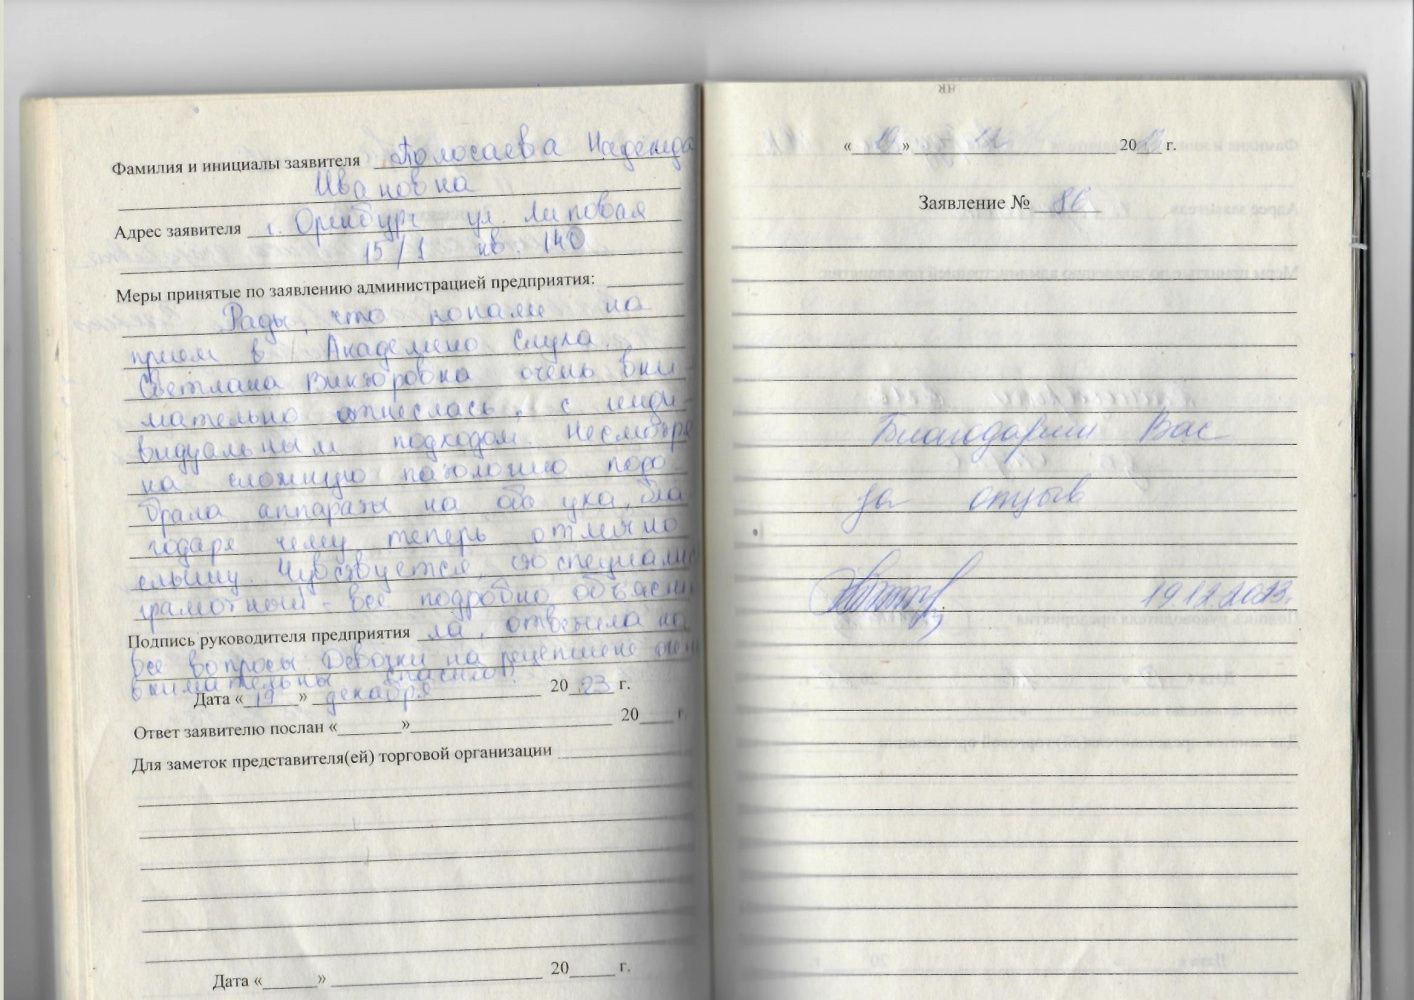 Фамилия и инициалы заявителя Полосаева Надежда
Ивановна
Адрес заявителя г. Оренбург ул. Липовая
15/1 кв. 140
Меры принятые по заявлению администрацией предприятия:
Рады, что попали на
прием в Академию Слуха.
Светлана Викторовна очень вни-
мательно отнеслась, с инди-
видуальным подходом. Несмотря
на сложную патологию подо-
брала аппараты на оба уха, бла
годаря чему теперь отлично
слышу. Чувствуется, что специалис
грамотный - все подробно объясни
Подпись руководителя предприятия ла, ответила на
все вопросы Девочки на рецепшене очень
внимательны спасибо!
Дата «19» декабря 2023 г.
Ответ заявителю послан «» 20 г.
Для заметок представителя(ей) торговой организации
Дата «» 20 г.
«19» 12 2023 г.
Заявление № 86
Благодарим Вас
за отзыв
19.12.2023г.